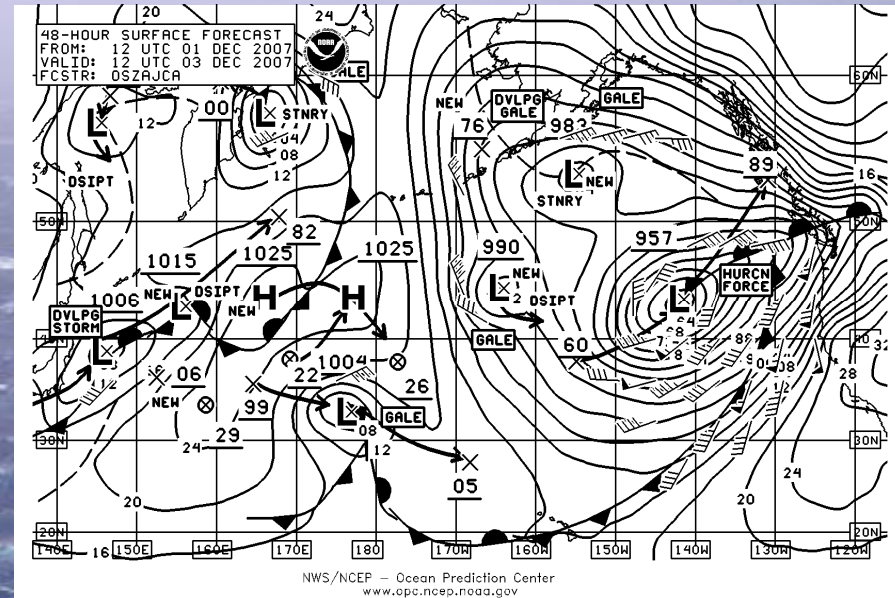 48-HOUR SURFACE FORECAST
FROM: 12 UTC 01 DEC 2007
VALID: 12 UTC 03 DEC 2007
FCSTR: OSZAJCA
NOAA
20
24
60N
60N
L
12
00
L
STNRY
08
12
NEW
DVLPG
GALE
GALE
76
983
L
NEW
STNRY
89
16
DSIPT
50N
50N
82
1015
1025
1025
990
957
NEW
DSIPT
H
NEW
H
L
NEW
DSIPT
L
HURCN
FORCE
1006
DVLPG
STORM
L
L
GALE
60
40
28
06
NEW
22
1004
26
99
L
GALE
08
12
29
24
30N
30N
05
20
24
20
20N
20N
16
140E
150E
160E
170E
180
170W
160W
150W
140W
130W
120W
NWS/NCEP – Ocean Prediction Center
www.opc.ncep.noaa.gov